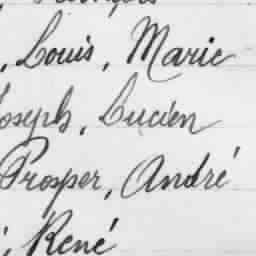 , Louis, Marie
Joseph, Lucien
Prosper, André
, René